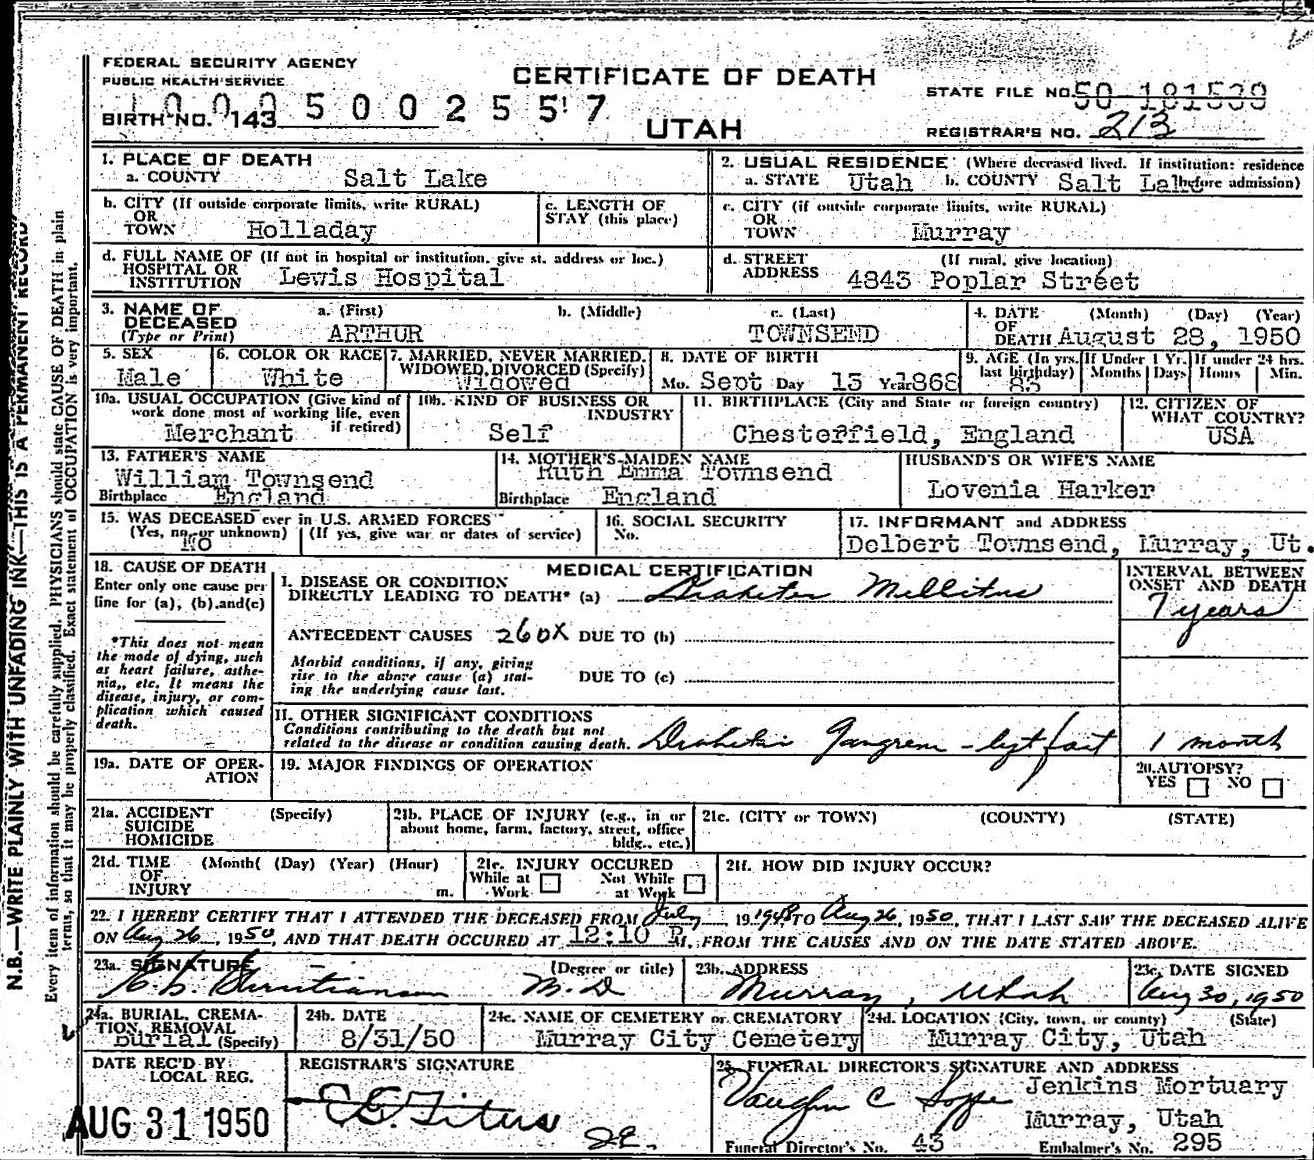 FEDERAL SECURITY AGENCY
PUBLIC HEALTH SERVICE
CERTIFICATE OF DEATH
STATE FILE NO. 50 181539
BIRTH NO. 143 5 0 0 2 5 5 7
UTAH
REGISTRAR'S NO. 213
1. PLACE OF DEATH
a. COUNTY Salt Lake
2. USUAL RESIDENCE (Where deceased lived. If institution: residence before admission)
a. STATE Utah b. COUNTY Salt Lake
b. CITY (If outside corporate limits, write RURAL) OR TOWN Holladay
c. LENGTH OF STAY (this place)
c. CITY (if outside corporate limits, write RURAL) OR TOWN Murray
d. FULL NAME OF (If not in hospital or institution, give st. address or loc.) HOSPITAL OR INSTITUTION Lewis Hospital
d. STREET ADDRESS (If rural, give location) 4843 Poplar Street
3. NAME OF DECEASED (Type or Print)
a. (First) ARTHUR
b. (Middle)
c. (Last) TOWNSEND
4. DATE OF DEATH (Month) (Day) (Year) August 28, 1950
5. SEX Male
6. COLOR OR RACE White
7. MARRIED, NEVER MARRIED, WIDOWED, DIVORCED (Specify) Widowed
8. DATE OF BIRTH Mo. Sept Day 15 Year 1868
9. AGE (In yrs. last birthday) 83
If Under 1 Yr. Months Days
If under 24 hrs. Hours Min.
10a. USUAL OCCUPATION (Give kind of work done most of working life, even if retired) Merchant
10b. KIND OF BUSINESS OR INDUSTRY Self
11. BIRTHPLACE (City and State or foreign country) Chesterfield, England
12. CITIZEN OF WHAT COUNTRY? USA
13. FATHER'S NAME William Townsend
Birthplace England
14. MOTHER'S MAIDEN NAME Ruth Emma Townsend
Birthplace England
HUSBAND'S OR WIFE'S NAME Lovenia Harker
15. WAS DECEASED ever in U.S. ARMED FORCES
(Yes, no or unknown) No (If yes, give war or dates of service)
16. SOCIAL SECURITY No.
17. INFORMANT and ADDRESS
Delbert Townsend, Murray, Ut.
18. CAUSE OF DEATH
Enter only one cause per line for (a), (b) and (c)
*This does not mean the mode of dying, such as heart failure, asthenia, etc. It means the disease, injury, or complication which caused death.
MEDICAL CERTIFICATION
I. DISEASE OR CONDITION DIRECTLY LEADING TO DEATH* (a) Diabetes Mellitus
INTERVAL BETWEEN ONSET AND DEATH
7 years
ANTECEDENT CAUSES 260X DUE TO (b)
Morbid conditions, if any, giving rise to the above cause (a) stating the underlying cause last.
DUE TO (c)
II. OTHER SIGNIFICANT CONDITIONS
Conditions contributing to the death but not related to the disease or condition causing death. Diabetic Gangrene - left foot
1 month
19a. DATE OF OPERATION
19. MAJOR FINDINGS OF OPERATION
20. AUTOPSY? YES NO
21a. ACCIDENT SUICIDE HOMICIDE (Specify)
21b. PLACE OF INJURY (e.g., in or about home, farm, factory, street, office bldg., etc.)
21c. (CITY or TOWN) (COUNTY) (STATE)
21d. TIME OF INJURY (Month( (Day) (Year) (Hour) m.
21e. INJURY OCCURED While at Work Not While at Work
21f. HOW DID INJURY OCCUR?
22. I HEREBY CERTIFY THAT I ATTENDED THE DECEASED FROM July 19 1948 TO Aug 26, 1950, THAT I LAST SAW THE DECEASED ALIVE
ON Aug 26, 1950, AND THAT DEATH OCCURED AT 12:10 P.M. FROM THE CAUSES AND ON THE DATE STATED ABOVE.
23a. SIGNATURE (Degree or title) Christianson M.D
23b. ADDRESS Murray, Utah
23c. DATE SIGNED Aug 30, 1950
24a. BURIAL, CREMATION, REMOVAL (Specify) Burial
24b. DATE 8/31/50
24c. NAME OF CEMETERY or CREMATORY Murray City Cemetery
24d. LOCATION (City, town, or county) (State) Murray City, Utah
DATE REC'D BY LOCAL REG.
AUG 31 1950
REGISTRAR'S SIGNATURE
25. FUNERAL DIRECTOR'S SIGNATURE AND ADDRESS
Vaughn C
Jenkins Mortuary
Murray, Utah
Funeral Director's No. 43 Embalmer's No. 295
N.B.—WRITE PLAINLY WITH UNFADING INK—THIS IS A PERMANENT RECORD
Every item of information should be carefully supplied. PHYSICIANS should state CAUSE OF DEATH in plain
terms, so that it may be properly classified. Exact statement of OCCUPATION is very important.